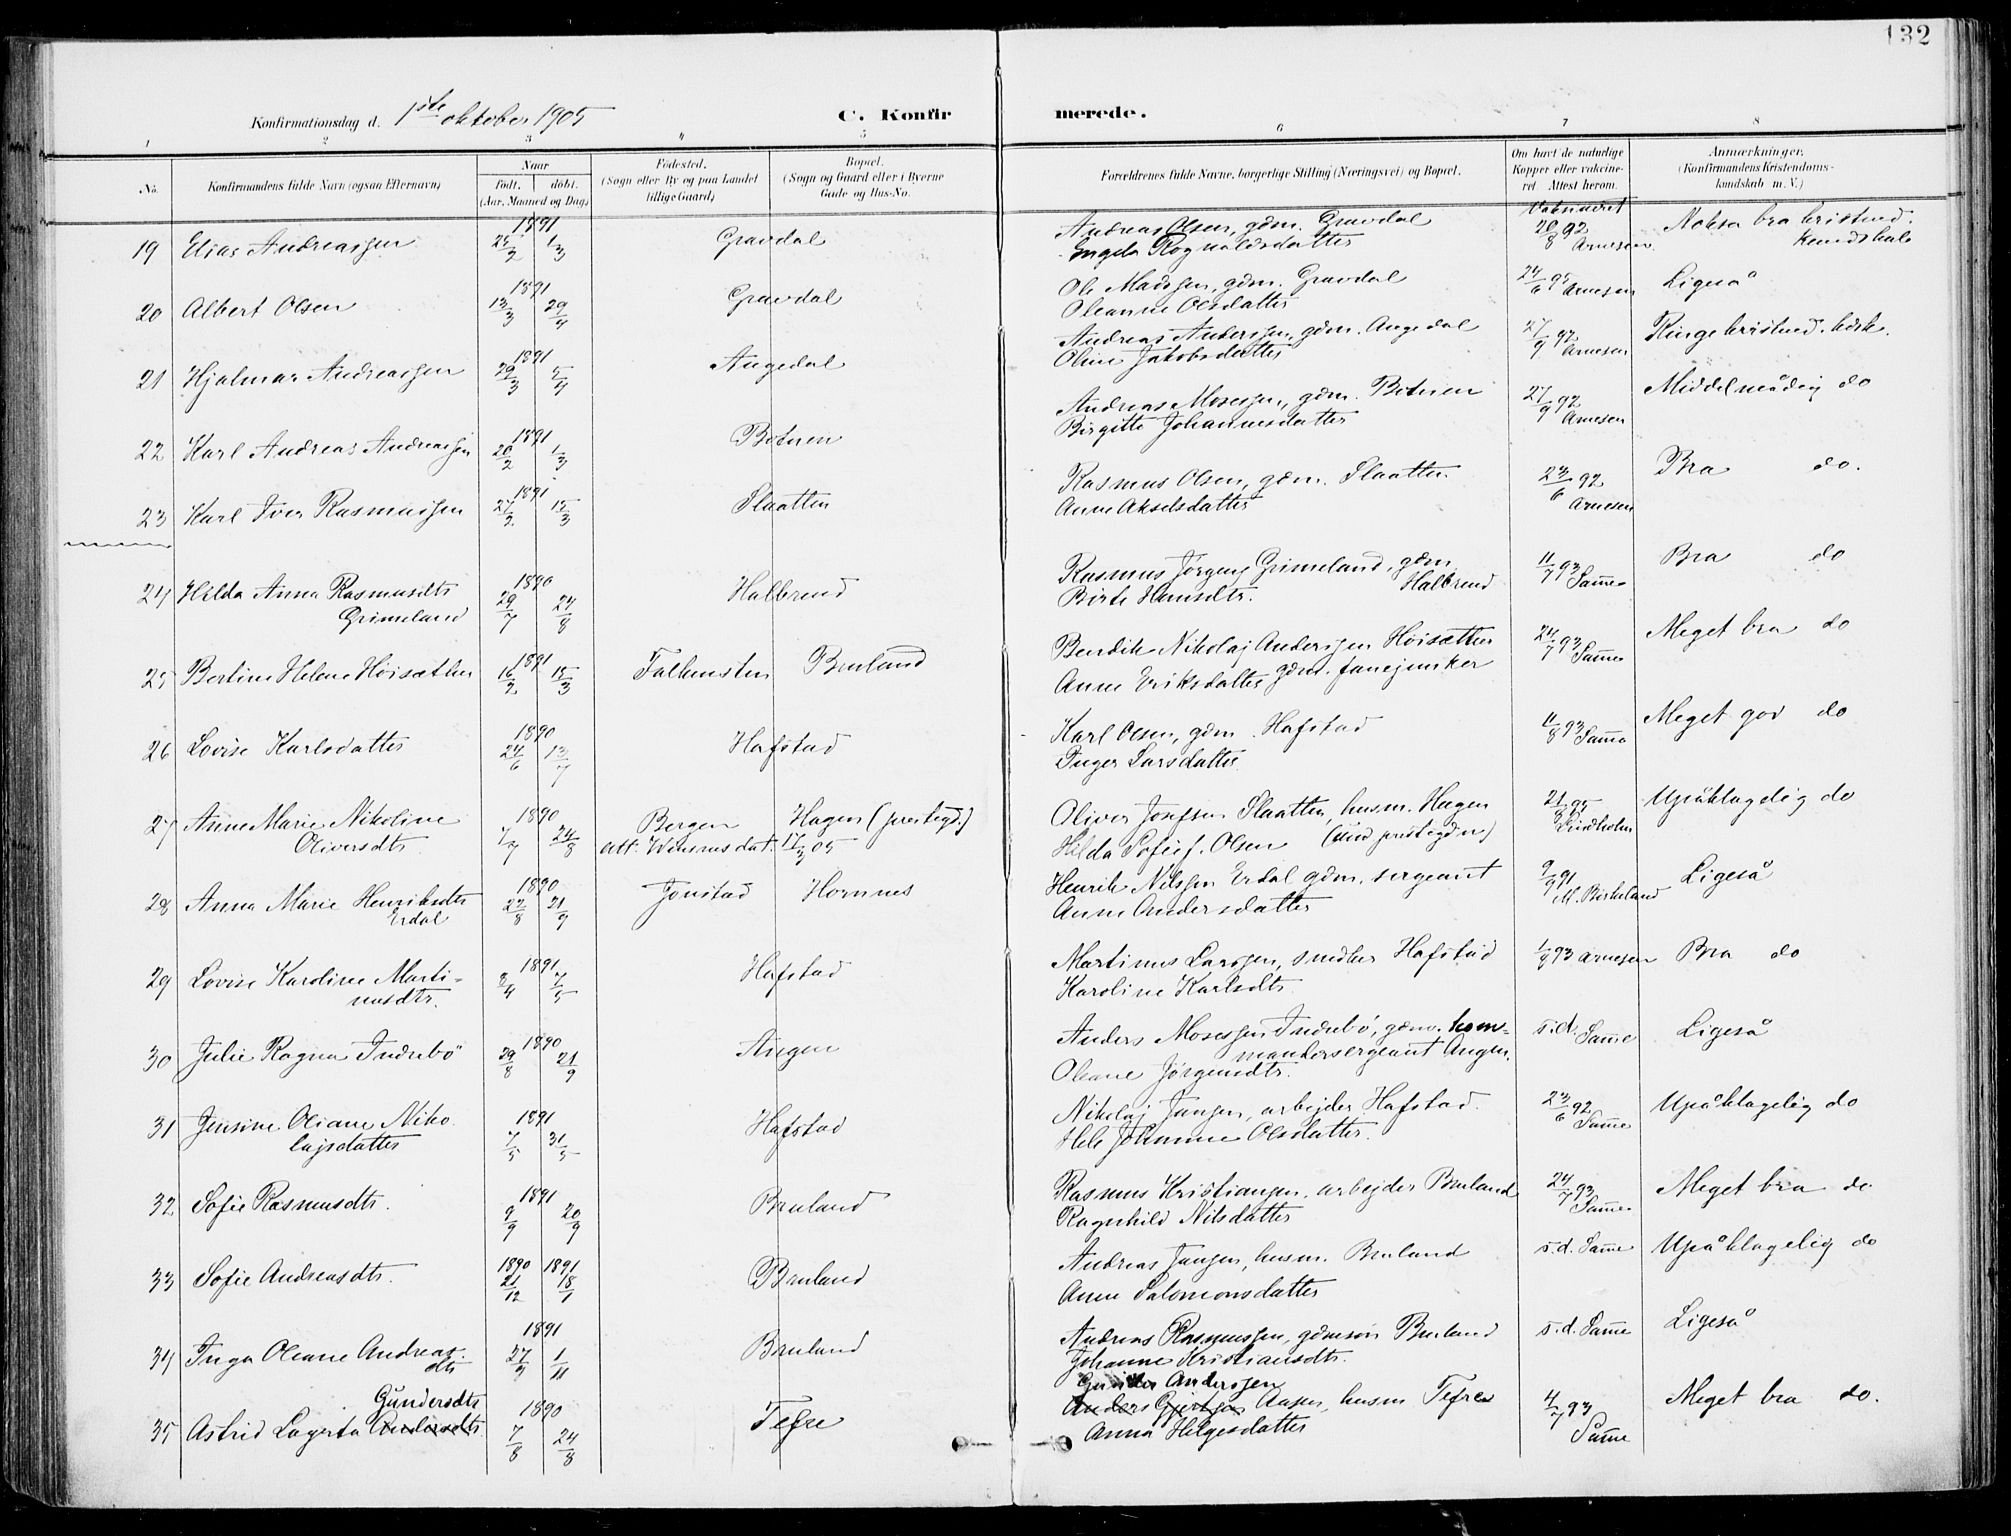 132
Konfirmationsdag d. 1ste oktober 1905 C. Konfirmerede.
1 2 3 4 5 6 7 8
No. Konfirmandens fulde Navn (ogsaa Efternavn) Naar Født. døbt. (Aar, Maaned og Dag) Fødested. (Sogn eller By og paa Landet tillige Gaard) Bopæl. (Sogn og Gaard eller i Byerne Gade og Hus-No. Forældrenes fulde Navne, borgerlige Stilling (Næringsvei) og Bopæl. Om havt de naturlige Kopper eller vakcineret. Attest herom. Anmærkninger. (Konfirmandens Kristendomskundskab m. V.)
19 Elias Andreassen 1891 25/2 1/3 Gravdal Andreas Olsen, gdm. Gravdal Vaksineret 20/8 92 Arnesen Noksa bra kristend.
Ingela Rognaldsdatter kundskab
20 Albert Olsen 1891 13/3 29/4 Gravdal Ole Madssen, gdm. Gravdal 24/6 95 Arnesen Ligeså
Oleanne Olsdatter
21 Hjalmar Andreassen 1891 29/3 5/4 Angedal Andreas Anderssen, gdm. Angedal 27/9 92 Arnesen Ringe kristend. kdsk.
Oline Jakobsdatter
22 Karl Andreas Andreassen 1891 20/2 1/3 Botnen Andreas Mosessen, gdm. Botnen 27/9 92 Arnesen Middelmådig do
Birgitte Johannesdatter
23 Karl Iver Rasmussen 1891 27/2 15/3 Slaatten Rasmus Olsen, gdm. Slaatten 23/6 92 Arnesen Bra do.
Anne Akselsdatter
24 Hilda Anna Rasmusdtr 1890 29/7 24/8 Halbrend Rasmus Jørgens Grimeland, gdm 11/7 93 Samme Bra do
Grimeland Halbrend
Birte Hansdtr.
25 Bertine Helene Høisæther 1891 16/2 15/3 Falkensten Bruland Bendik Nikolaj Anderssen Høisæther 24/7 93 Samme Meget bra do
Anne Eriksdatter gdm. fanejunker
26 Lovise Karlsdatter 1890 24/6 13/7 Hafstad Karl Olsen, gdm. Hafstad 11/8 93 Samme Meget god do
Inger Larsdatter
27 Anne Marie Nikoline 1890 7/7 24/8 Bergen Hagen (prestegd.) Oliver Josefssen Slaatten, husm. Hagen 21/8 95 Lindholm Upåklagelig do
Oliversdtr. att. 17/3 05 Hilda Sofie f. Olsen (und prestegden)
28 Anna Marie Henriksdtr 1890 22/8 21/9 Jonstad Hornnes Henrik Nilssen Erdal gdm. sergeant 9/9 91 M. Birkeland Ligeså
Erdal Anne Andersdatter
29 Lovise Karoline Marti- 1891 2/4 7/5 Hafstad Martinus Larssen, snedker Hafstad 1/8 93 Arnesen Bra do
nusdtr. Karoline Karlsdtr.
30 Julie Ragna Indrebö 1890 29/8 21/9 Angen Anders Mosessen Indrebö, gdm. kom-
mandersergeant Angen. s.d. Samme Ligeså
Oleane Jørgensdtr.
31 Jensine Oliane Niko 1891 7/5 31/5 Hafstad Nikolaj Jansen, arbejder Hafstad. 23/6 92 Samme Upåklagelig do
lajsdatter Johanne Olsdatter.
32 Sofie Rasmusdtr. 1891 9/9 20/9 Bruland Rasmus Kristiansen, arbejder Bruland 24/7 93 Samme Meget bra do
Ragnhild Nilsdatter
33 Sofie Andreasdtr. 1890 21/12 1891 18/1 Bruland Andreas Jansen, husm. Bruland s.d. Samme Upåklagelig do
Anne Salomonsdatter
34 Inga Oleane Andreas- 1891 27/9 1/11 Bruland Andreas Rasmussen, gdmsøn Bruland s.d. Samme Ligeså
dtr Johanne Kristiansdtr.
Gundersdtr Gunder Anderssen
35 Astrid Lagerta Andersdtr 1890 7/8 24/8 Tefre Anders Aasen, husm Tefre 4/7 93 Samme Meget bra do.
Anna Helgesdatter